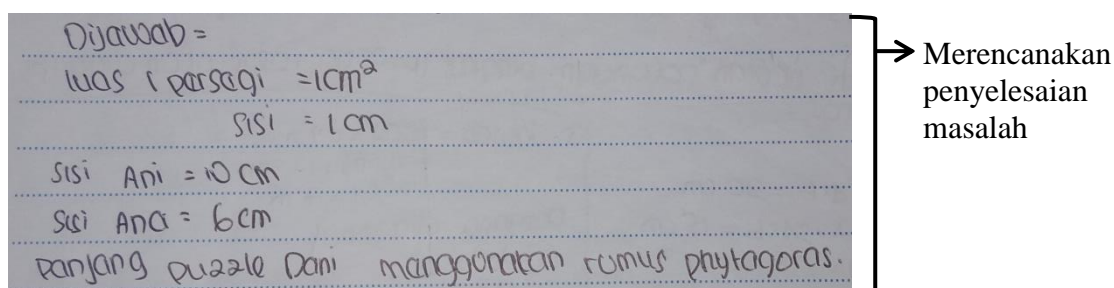 Dijawab =
luas 1 persegi = 1cm²
sisi = 1 cm
sisi Ani = 10 cm
sisi Ana = 6 cm
panjang puzzle Dani manggunakan rumus phytagoras.
Merencanakan
penyelesaian
masalah